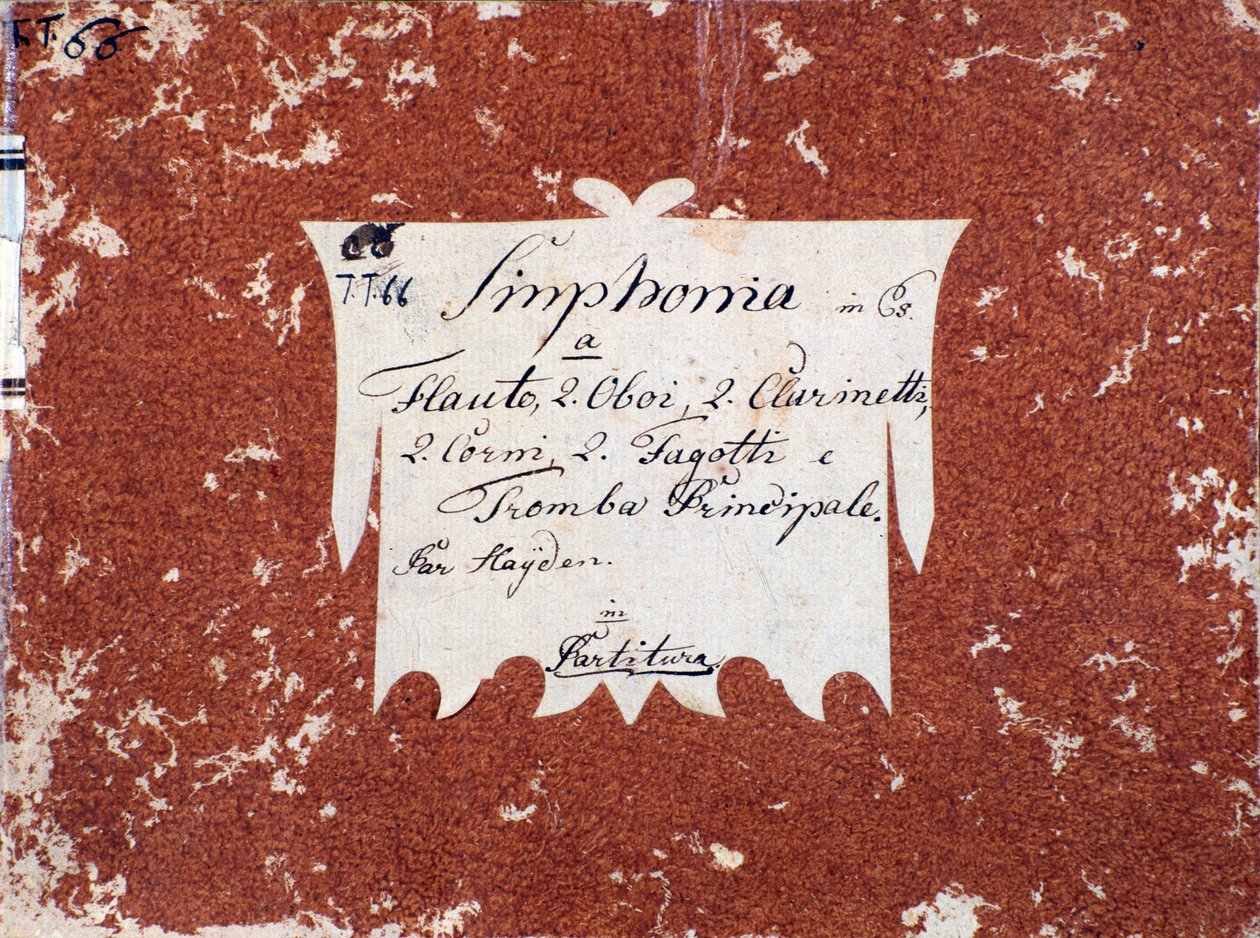 T.T.66
T.T.66
Simphonia in Es.
a
Flauto, 2. Oboi, 2. Clarinetti,
2. Corni, 2. Fagotti e
Tromba Principale.
Par Haÿden.
in
Partitura.